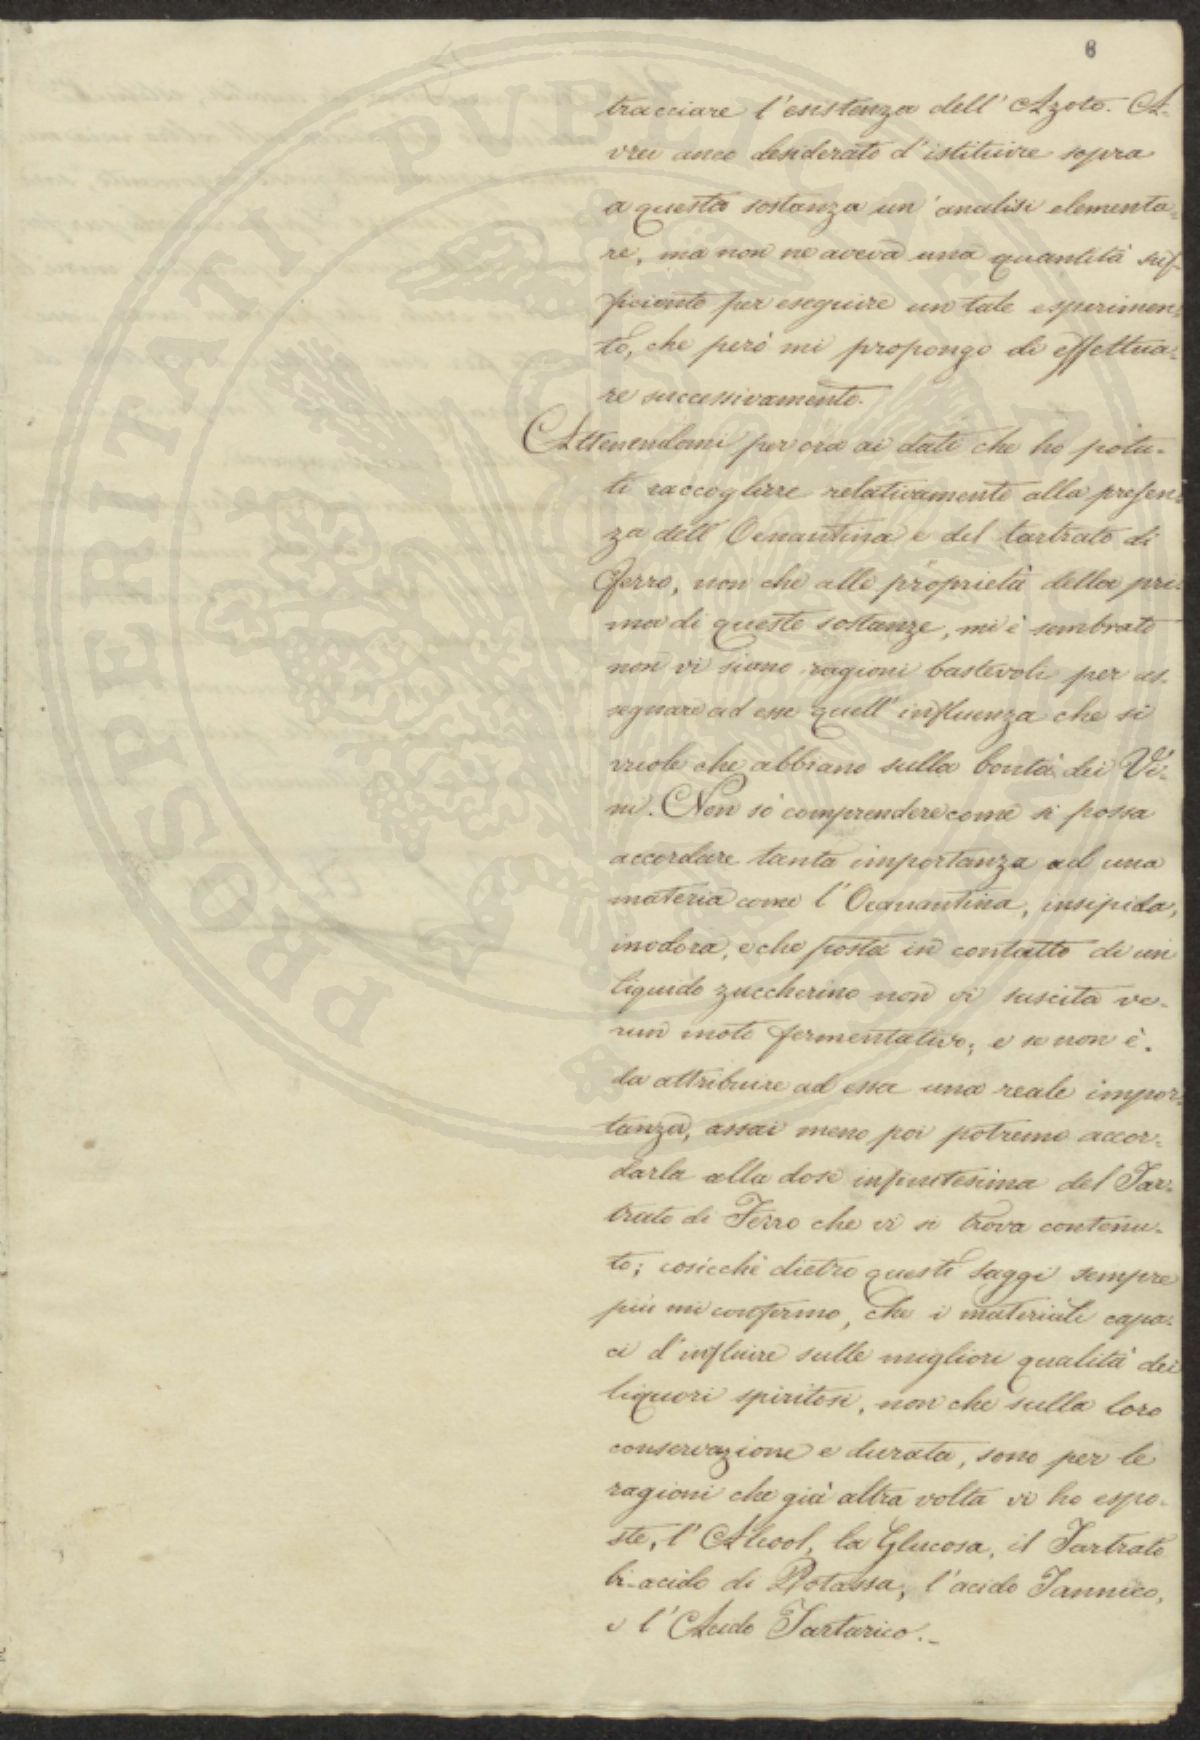 6
tracciare l'esistenza dell'Azoto. A-
vrei anco desiderato d'istituire sopra
a questa sostanza un'analisi elementa-
re, ma non ne aveva una quantità suf-
ficiente per eseguire un tale esperimen-
to, che però mi propongo di effettua-
re successivamente.
Attenendomi per ora ai dati che ho potu-
ti raccogliere relativamente alla presen-
za dell'Oenantina e del tartrato di
Ferro, non che alle proprietà della pri-
ma di queste sostanze, mi è sembrato
non vi siano ragioni bastevoli per as-
segnare ad esse quell'influenza che si
vuole che abbiano sulla bontà dei Vi-
ni. Non sò comprendere come si possa
accordare tanta importanza ad una
materia come l'Oenantina, insipida,
inodora, e che posta in contatto di un
liquido zuccherino non vi suscita ve-
run moto fermentativo; e se non è
da attribuire ad essa una reale impor-
tanza, assai meno poi potremo accor-
darla alla dose infinitesima del Tar-
trato di Ferro che vi si trova contenu-
to; cosicchè dietro questi saggi sempre
più mi confermo, che i materiali capa-
ci d'influire sulle migliori qualità dei
liquori spiritosi, non che sulla loro
conservazione e durata, sono per le
ragioni che già altra volta vi ho espo-
ste, l'Alcool, la Glucosa, il Tartrato
bi-acido di Potassa, l'acido Tannico,
e l'Acido Tartarico.-
PROSPERITATI PVBLICAE